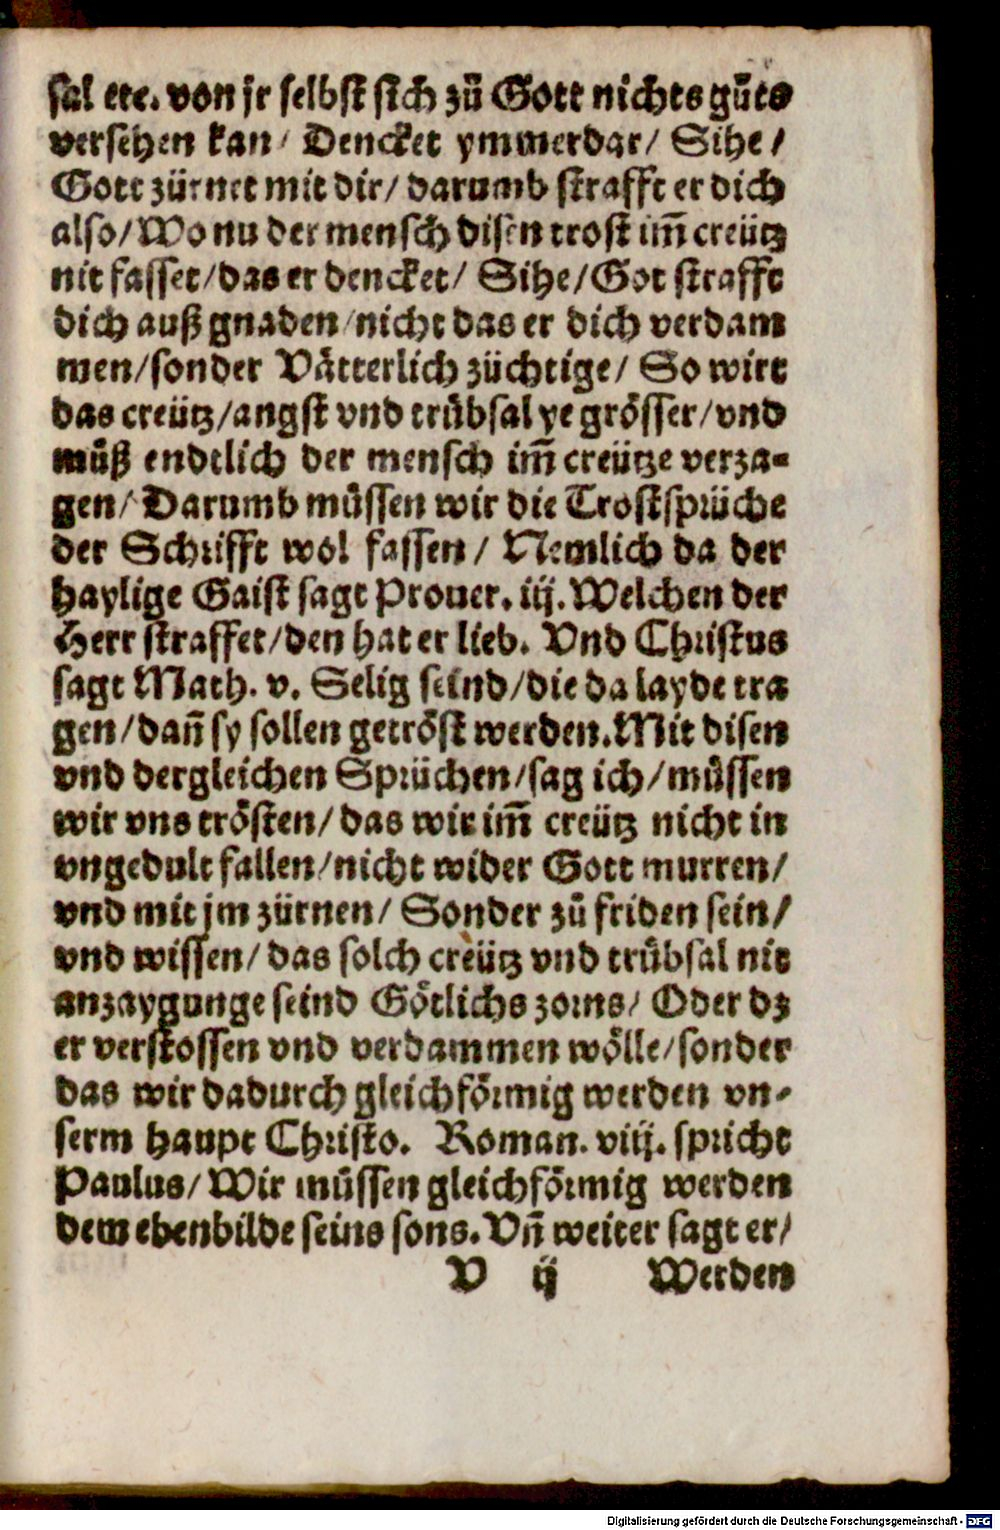 sal etc. von jr selbst sich zů Gott nichts gůts
versehen kan/ Dencket ymmerdar/ Sihe/
Gott zürnet mit dir/ darumb strafft er dich
also/ Wo nu der mensch disen trost im̃ creütz
nit fasset/ das er dencket/ Sihe/ Got strafft
dich auß gnaden/ nicht das er dich verdam
men/ sonder Vätterlich züchtige/ So wirt
das creütz/ angst vnd trůbsal ye grösser/ vnd
můß endtlich der mensch im̃ creütze verza-
gen/ Darumb můssen wir die Trostsprüche
der Schrifft wol fassen/ Nemlich da der
haylige Gaist sagt Prouer. iij. Welchen der
Herr straffet/ den hat er lieb. Vnd Christus
sagt Math. v. Selig seind/ die da layde tra
gen/ dañ sy sollen getröst werden. Mit disen
vnd dergleichen Sprüchen/ sag ich/ můssen
wir vns trösten/ das wir im̃ creütz nicht in
vngedult fallen/ nicht wider Gott murren/
vnd mit jm zürnen/ Sonder zů friden sein/
vnd wissen/ das solch creütz vnd trůbsal nit
anzaygunge seind Götlichs zorns/ Oder dz
er verstossen vnd verdammen wölle/ sonder
das wir dadurch gleichförmig werden vn-
serm haupt Christo. Roman. viij. spricht
Paulus/ Wir můssen gleichförmig werden
dem ebenbilde seins sons. Vñ weiter sagt er/
V ij Werden
Digitalisierung gefördert durch die Deutsche Forschungsgemeinschaft - DFG